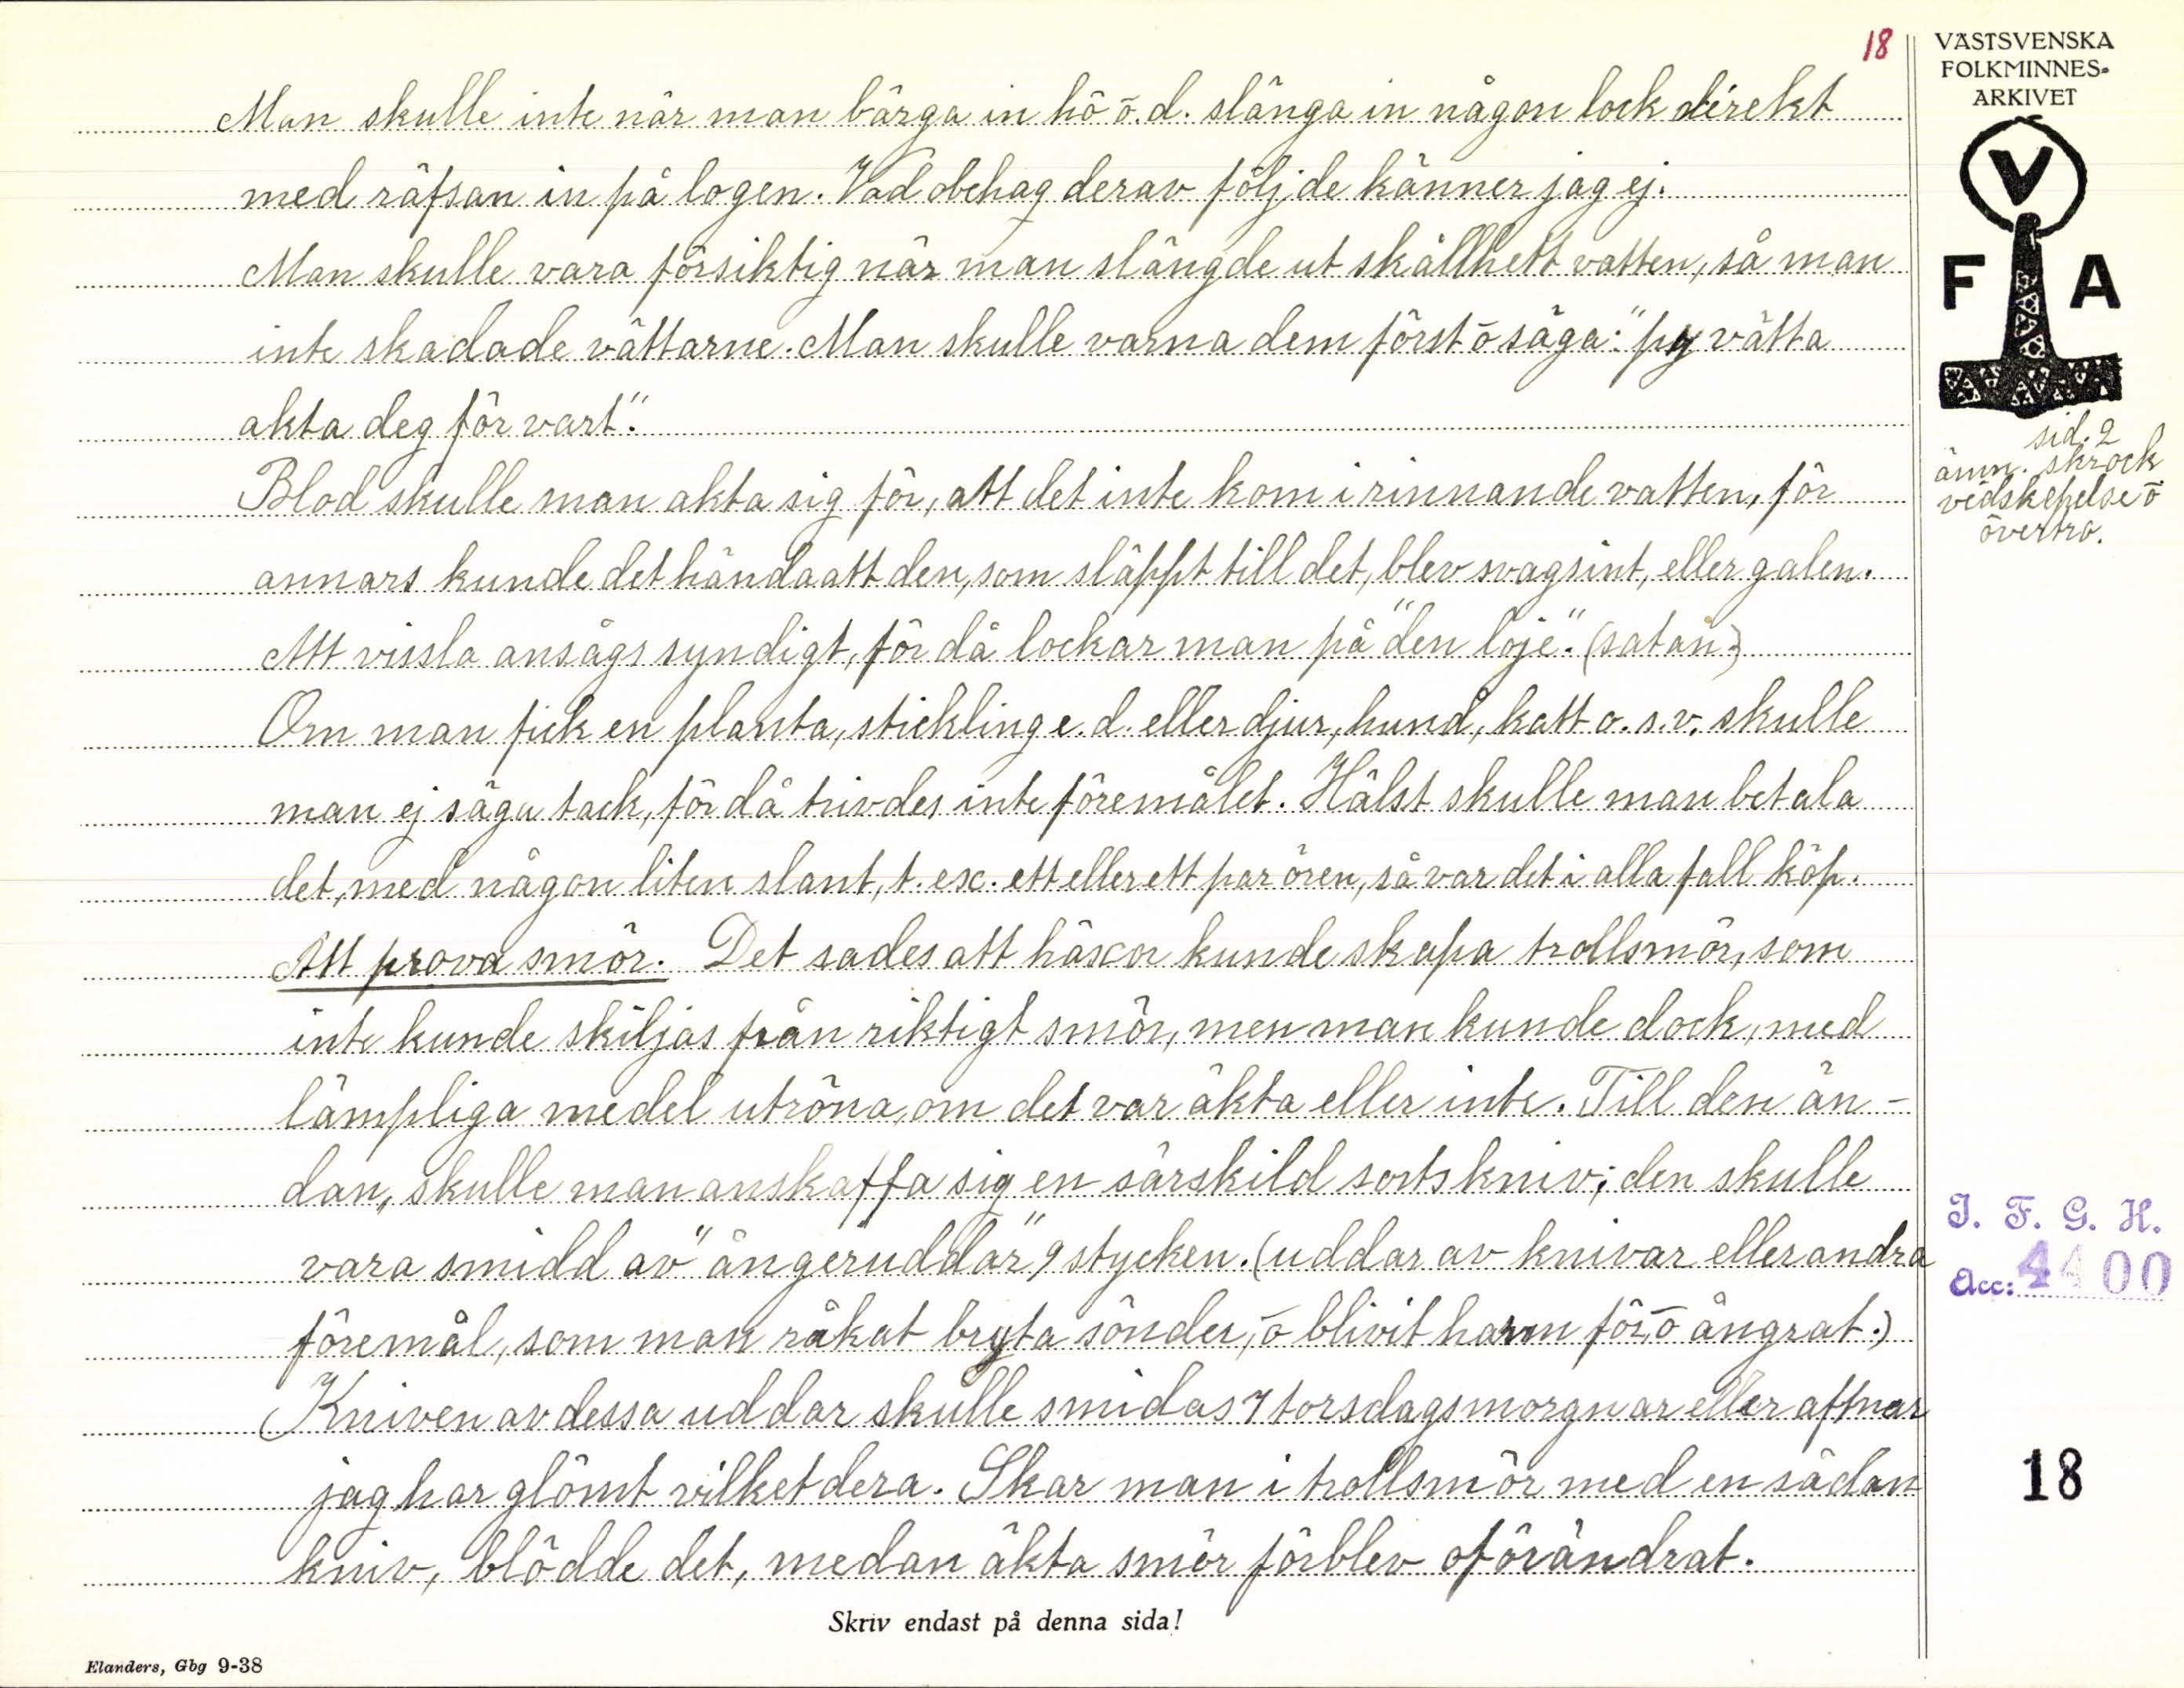 18
Man skulle inte när man bärga in hö ō. d. slänga in någon lock direkt
med räfsan in på logen. Vad obehag derav följde känner jag ej.
Man skulle vara försiktig när man slängde ut skållhett vatten, så man
inte skadade vättarne. Man skulle varna dem först ō säga: "py vätta
akta deg för vart".
Blod skulle man akta sig för, att det inte kom i rinnande vatten, för
annars kunde det hända att den, som släppt till det, blev svagsint, eller galen.
Att vissla ansågs syndigt, för då lockar man på "den löje". (satan.)
Om man fick en planta, stickling e. d. eller djur, hund, katt o. s. v. skulle
man ej säga tack, för då trivdes inte föremålet. Hälst skulle man betala
det, med någon liten slant, t. ex. ett eller ett par ören, så var det i alla fall köp.
Att prova smör. Det sades att häxor kunde skapa trollsmör, som
inte kunde skiljas från riktigt smör, men man kunde dock, med
lämpliga medel utröna, om det var äkta eller inte. Till den än-
dan, skulle man anskaffa sig en särskild sorts kniv; den skulle
vara smidd av "ångeruddar" 9 stycken. (uddar av knivar eller andra
föremål, som man råkat bryta sönder, ō blivit harm för, ō ångrat.)
Kniven av dessa uddar skulle smidas 7 torsdagsmorgnar eller aftnar
jag har glömt vilketdera. Skar man i trollsmör med en sådan
kniv, blödde det, medan äkta smör förblev oförändrat.
Skriv endast på denna sida!
Elanders, Gbg 9-38
VÄSTSVENSKA
FOLKMINNES-
ARKIVET
V
F A
sid. 2
ämn. skrock
vidskepelse ō
övertro.
I. F. G. H.
Acc: 4400
18